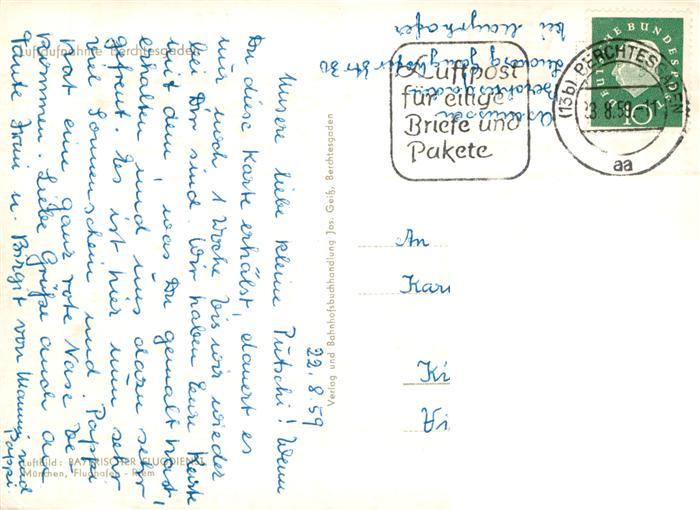 Luftaufnahme Berchtesgaden
22.8.59
Unsere liebe kleine Putschi! Wenn
Du diese Karte erhälst, dauert es
nur noch 1 Woche bis wir wieder
bei Dir sind. Wir haben Eure Karte
mit dem, was Du gemalt hast,
erhalten und uns dazu sehr
gefreut. Es ist hier nun sehr
viel Sonnenschein und Pappi
hat eine ganz rote Nase be-
kommen. Liebe Grüße auch an
Tante Frau u. Birgit von Mammi und
Pappi
Luftbild: BAYERISCHER FLUGDIENST
München, Flughafen - Riem
Verlag und Bahnhofsbuchhandlung Jos. Geiß, Berchtesgaden
bei Mayrhofer
Ludwig
Berchtesgaden
Luftpost
für eilige
Briefe und
Pakete
(13b) BERCHTESGADEN
23.8.59-11
aa
DEUTSCHE BUNDESPOST
10
An
Kari
Ki
Vi